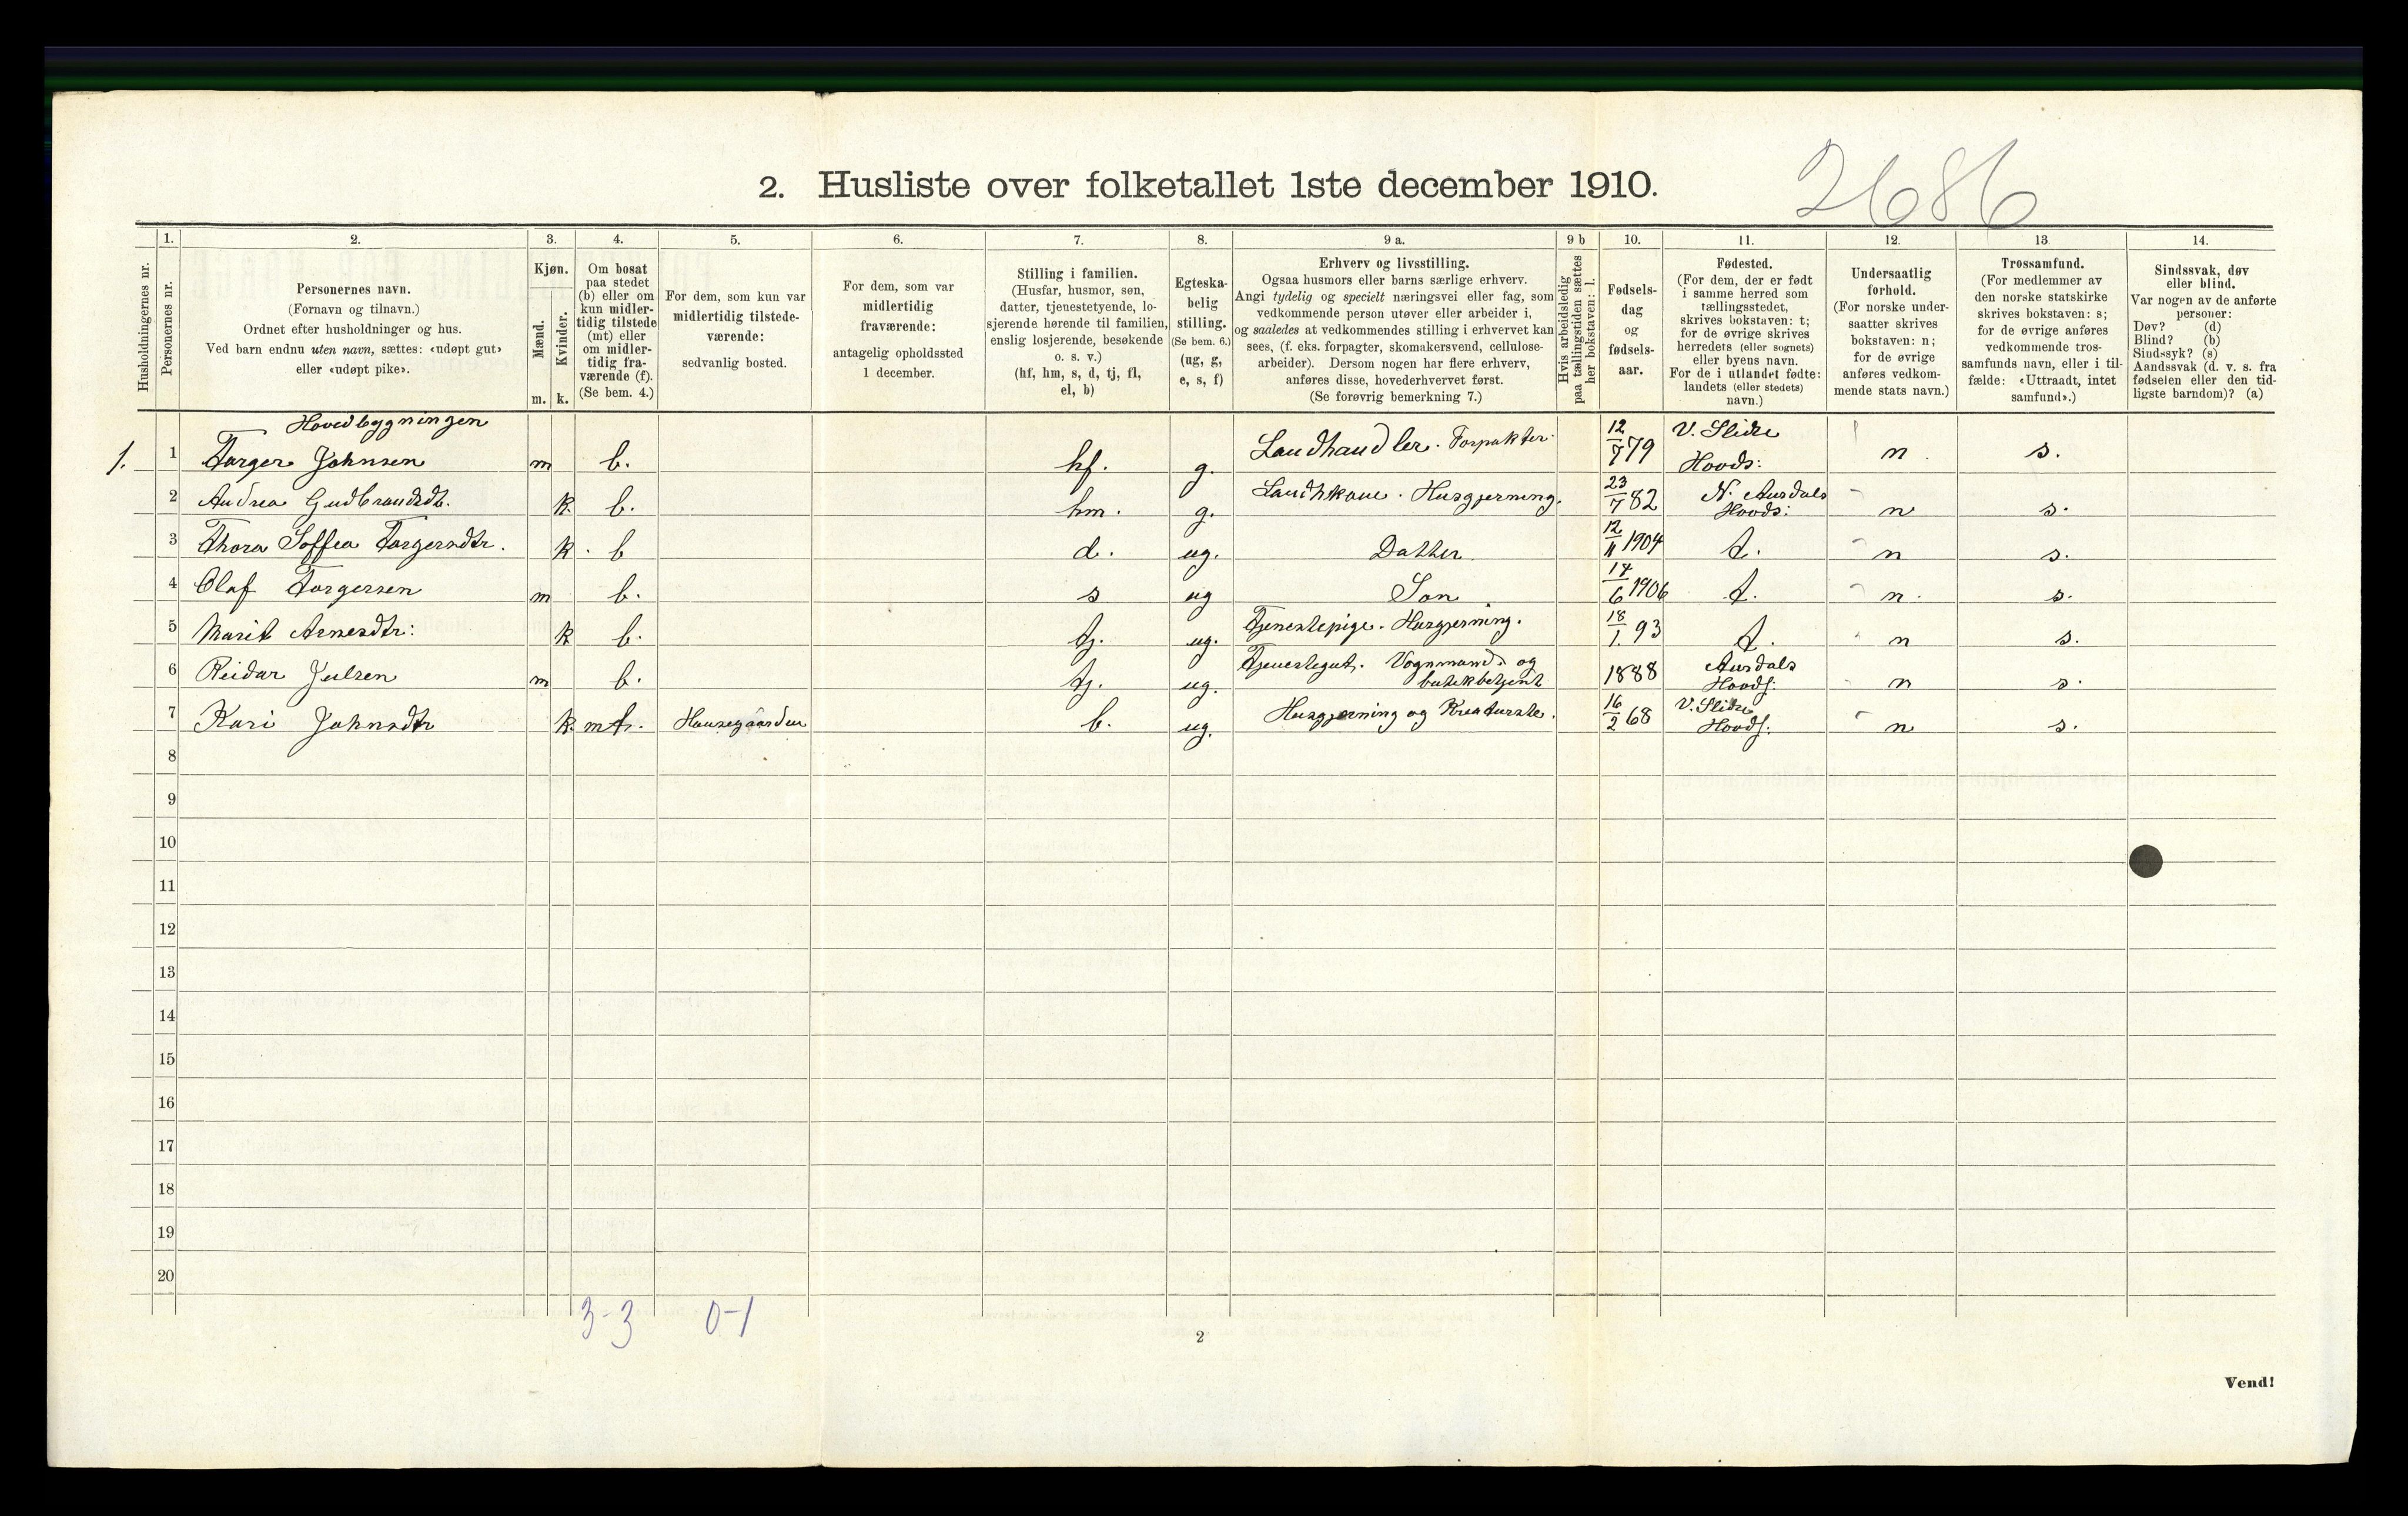 2686
2. Husliste over folketallet 1ste december 1910.
1. 2. 3. 4. 5. 6. 7. 8. 9 a. 9 b 10. 11. 12. 13. 14.
Husholdningernes nr.
Personernes nr.
Personernes navn.
(Fornavn og tilnavn.)
Ordnet efter husholdninger og hus.
Ved barn endnu uten navn, sættes: «udøpt gut»
eller «udøpt pike».
Kjøn.
Mænd.
Kvinder.
m. k.
Om bosat
paa stedet
(b) eller om
kun midler-
tidig tilstede
(mt) eller
om midler-
tidig fra-
værende (f).
(Se bem. 4.)
For dem, som kun var
midlertidig tilstede-
værende:
sedvanlig bosted.
For dem, som var
midlertidig
fraværende:
antagelig opholdssted
1 december.
Stilling i familien.
(Husfar, husmor, søn,
datter, tjenestetyende, lo-
sjerende hørende til familien,
enslig losjerende, besøkende
o. s. v.)
(hf, hm, s, d, tj, fl,
el, b)
Egteska-
belig
stilling.
(Se bem. 6.)
(ug, g,
e, s, f)
Erhverv og livsstilling.
Ogsaa husmors eller barns særlige erhverv.
Angi tydelig og specielt næringsvei eller fag, som
vedkommende person utøver eller arbeider i,
og saaledes at vedkommendes stilling i erhvervet kan
sees, (f. eks. forpagter, skomakersvend, cellulose-
arbeider). Dersom nogen har flere erhverv,
anføres disse, hovederhvervet først.
(Se forøvrig bemerkning 7.)
Hvis arbeidsledig
paa tællingstiden sættes
her bokstaven: l.
Fødsels-
dag
og
fødsels-
aar.
Fødested.
(For dem, der er født
i samme herred som
tællingsstedet,
skrives bokstaven: t;
for de øvrige skrives
herredets (eller sognets)
eller byens navn.
For de i utlandet fødte:
landets (eller stedets)
navn.)
Undersaatlig
forhold.
(For norske under-
saatter skrives
bokstaven: n;
for de øvrige
anføres vedkom-
mende stats navn.)
Trossamfund.
(For medlemmer av
den norske statskirke
skrives bokstaven: s;
for de øvrige anføres
vedkommende tros-
samfunds navn, eller i til-
fælde: «Uttraadt, intet
samfund».)
Sindssvak, døv
eller blind.
Var nogen av de anførte
personer:
Døv? (d)
Blind? (b)
Sindssyk? (s)
Aandssvak (d. v. s. fra
fødselen eller den tid-
ligste barndom)? (a)
Hovedbygningen
1. 1 Torger Johnsen m b. hf. g. Landhandler. Forpakter. 12/7 79 V. Slidre Hovds: n s.
2 Andrea Gudbrandsdt. k. b. hm. g. Landhkone. Husgjerning. 23/7 82 N. Aurdals Hovds: n s.
3 Thora Soffea Torgersdtr. k. b d. ug. Datter 12/11 1904 t. n s.
4 Olaf Torgersen m b. s ug Søn 14/6 1906 t. n. s.
5 Marit Arnesdtr: k b. tj. ug. Tjenestepige. Husgjerning. 18/1. 93 t. n s.
6 Reidar Julsen m b. tj. ug. Tjenestegut. Vognmands og butikbetjent 1888 Aurdals Hovds: n s.
7 Kari Johnsdtr k. mt. Hausegaarden b. ug. Husgjerning og Kreaturste. 16/2 68 V. Slidre Hovds: n s.
8
9
10
11
12
13
14
15
16
17
18
19
20
3-3 0-1
2
Vend!